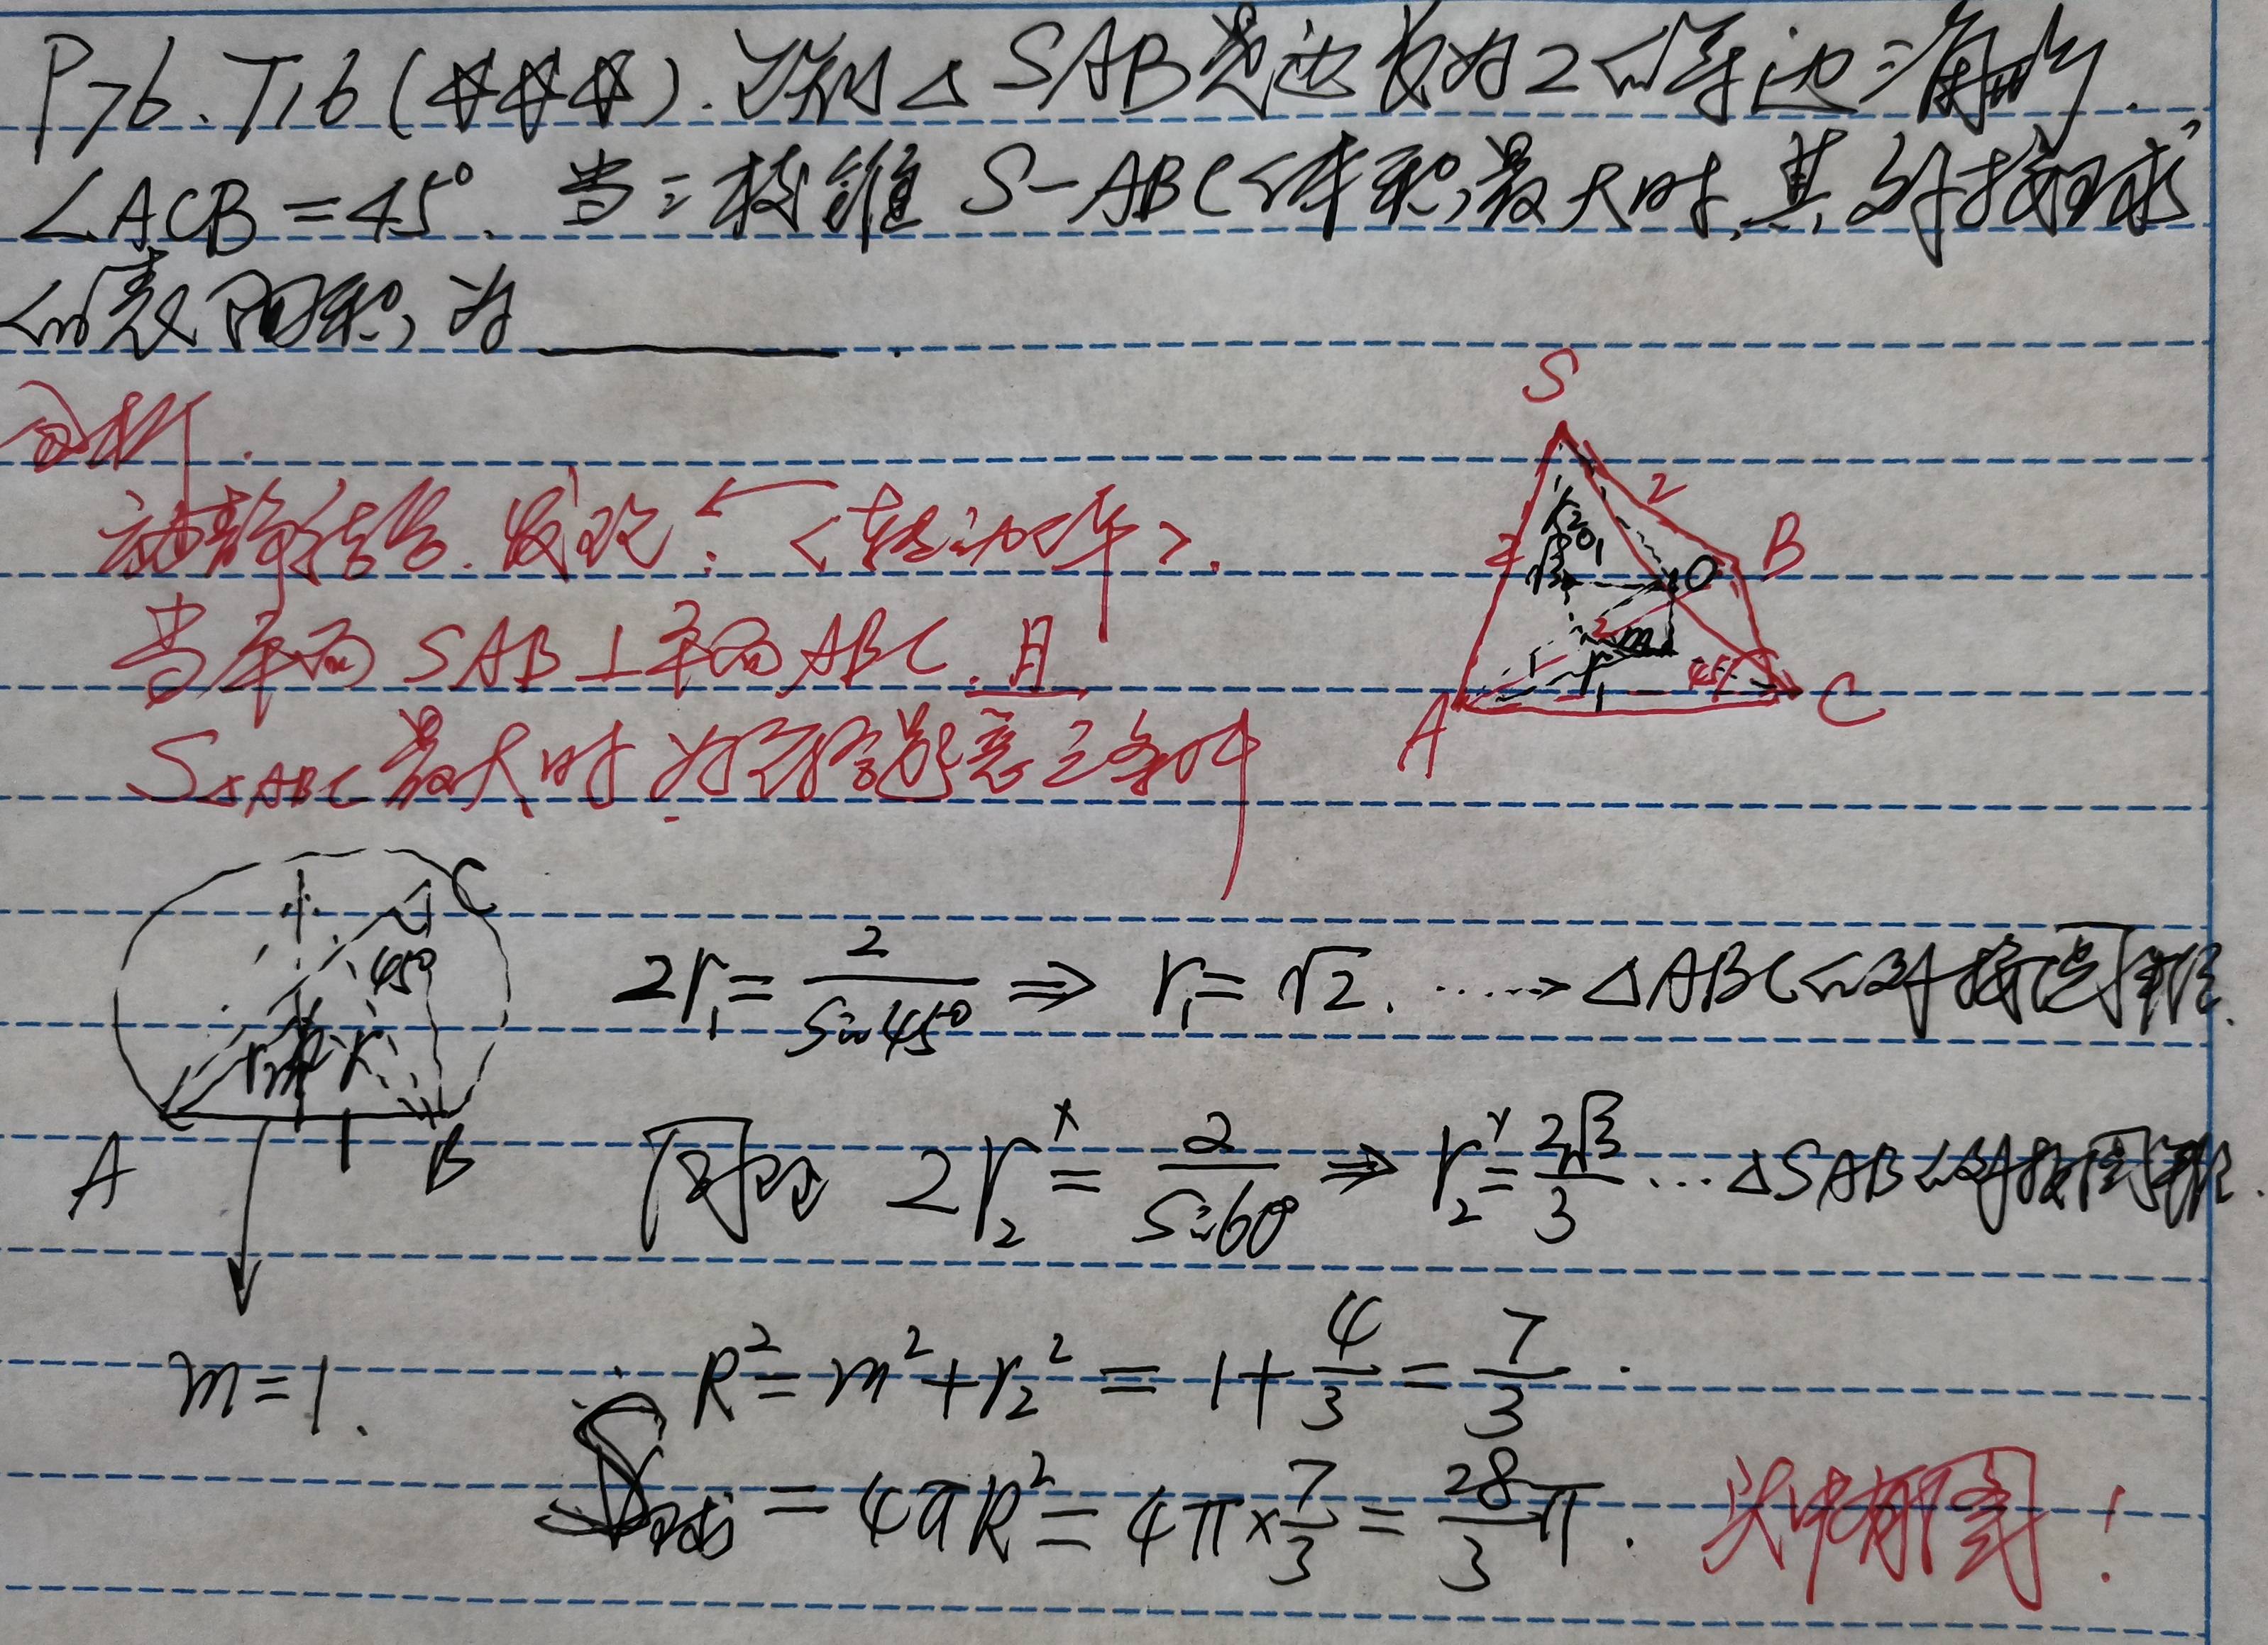 P76. T16(☆☆☆). 已知△SAB是边长为2的等边三角形.
∠ACB=45°. 当三棱锥 S-ABC体积最大时,其外接球
的表面积为______.
分析.
动静结合. 发现: ← <转动平>.
当平面SAB⊥平面ABC.且
S△ABC最大时为符合题意之条件
S
2
B
2
r₂
O₁
√3
O
2
m
1
r₁
45°
A
C
C
45°
r₁
m
r₁
1
A
B
m=1.
2r₁=2/sin45° ⇒ r₁=√2. ......→ △ABC的外接圆半径.
同理 2r₂=2/sin60° ⇒ r₂=2√3/3 ... △SAB的外接圆半径.
∴ R²=m²+r₂²=1+4/3=7/3.
S球=4πR²=4π×7/3=28/3π.
头中有图!